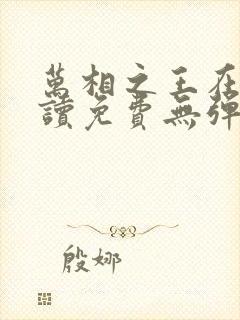 萬相之王在
讀免費無彈
殷娜